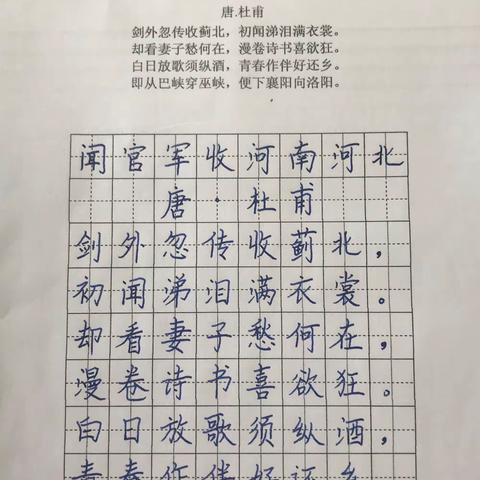 唐.杜甫
剑外忽传收蓟北，初闻涕泪满衣裳。
却看妻子愁何在，漫卷诗书喜欲狂。
白日放歌须纵酒，青春作伴好还乡。
即从巴峡穿巫峡，便下襄阳向洛阳。
闻官军收河南河北
唐·杜甫
剑外忽传收蓟北，
初闻涕泪满衣裳。
却看妻子愁何在，
漫卷诗书喜欲狂。
白日放歌须纵酒，
青春作伴好还乡